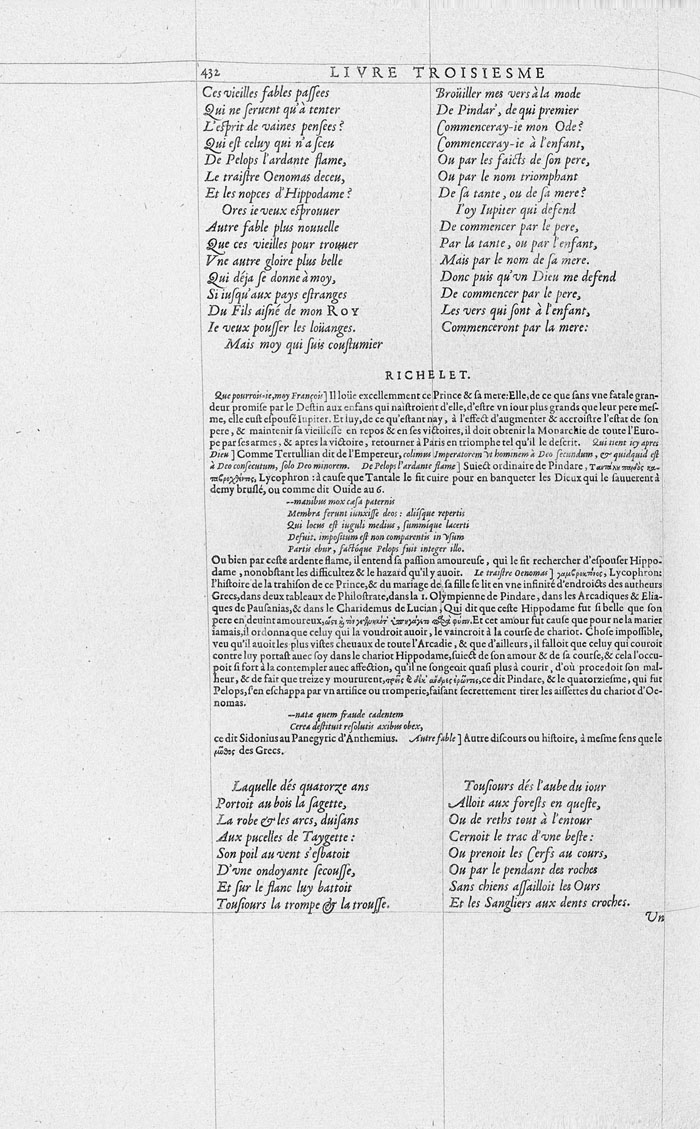 432 LIVRE TROISIESME
Ces vieilles fables passées
Qui ne seruent qu'à tenter
L'esprit de vaines pensées?
Qui est celuy qui n'a sceu
De Pelops l'ardante flame,
Le traistre Oenomas deceu,
Et les nopces d'Hippodame?
Ores ie veux esprouuer
Autre fable plus nouuelle
Que ces vieilles pour trouuer
Vne autre gloire plus belle
Qui déja se donne à moy,
Si iusqu'aux pays estranges
Du Fils aisné de mon ROY
Ie veux pousser les loüanges.
Mais moy qui suis coustumier
Broüiller mes vers à la mode
De Pindar', de qui premier
Commenceray-ie mon Ode?
Commenceray-ie à l'enfant,
Ou par les faicts de son pere,
Ou par le nom triomphant
De sa tante, ou de sa mere?
I'oy Iupiter qui defend
De commencer par le pere,
Par la tante, ou par l'enfant,
Mais par le nom de sa mere.
Donc puis qu'vn Dieu me defend
De commencer par le pere,
Les vers qui sont à l'enfant,
Commenceront par la mere:
RICHELET.
Que pourrois-ie, moy François] Il loüe excellemment ce Prince & sa mere: Elle, de ce que sans vne fatale gran-
deur promise par le Destin aux enfans qui naistroient d'elle, d'estre vn iour plus grands que leur pere mes-
me, elle eust espousé Iupiter. Et luy, de ce qu'estant nay, à l'effect d'augmenter & accroistre l'estat de son
pere, & maintenir sa vieillesse en repos & en ses victoires, il doit obtenir la Monarchie de toute l'Euro-
pe par ses armes, & apres la victoire, retourner à Paris en triomphe tel qu'il le descrit. Qui tient icy apres
Dieu] Comme Tertullian dit de l'Empereur, colimus Imperatorem vt hominem à Deo secundum, & quidquid est
à Deo consecutum, solo Deo minorem. De Pelops l'ardante flame] Suiect ordinaire de Pindare,
Lycophron: à cause que Tantale le fit cuire pour en banqueter les Dieux qui le sauuerent à
demy bruslé, ou comme dit Ouide au 6.
--manibus mox cæsa paternis
Membra ferunt iunxisse deos: aliisque repertis
Qui locus est iuguli medius, summique lacerti
Defuit. impositum est non comparentis in vsum
Partis ebur, factóque Pelops fuit integer illo.
Ou bien par ceste ardente flame, il entend sa passion amoureuse, qui le fit rechercher d'espouser Hippo-
dame, nonobstant les difficultez & le hazard qu'il y auoit. Le traistre Oenomas] Lycophron:
l'histoire de la trahison de ce Prince, & du mariage de sa fille se lit en vne infinité d'endroicts des autheurs
Grecs, dans deux tableaux de Philostrate, dans la 1. Olympienne de Pindare, dans les Arcadiques & Elia-
ques de Pausanias, & dans le Charidemus de Lucian, Qui dit que ceste Hippodame fut si belle que son
pere en deuint amoureux, Et cet amour fut cause que pour ne la marier
iamais, il ordonna que celuy qui la voudroit auoir, le vaincroit à la course de chariot. Chose impossible,
veu qu'il auoit les plus vistes cheuaux de toute l'Arcadie, & que d'ailleurs, il falloit que celuy qui couroit
contre luy portast auec soy dans le chariot Hippodame, suiect de son amour & de sa course, & cela l'occu-
poit si fort à la contempler auec affection, qu'il ne songeoit quasi plus à courir, d'où procedoit son mal-
heur, & de fait que treize y moururent, ce dit Pindare, & le quatorziesme, qui fut
Pelops, s'en eschappa par vn artifice ou tromperie, faisant secrettement tirer les aissettes du chariot d'Oe-
nomas.
--nata quem fraude cadentem
Cerea destituit resolutis axibus obex,
ce dit Sidonius au Panegyric d'Anthemius. Autre fable] Autre discours ou histoire, à mesme sens que le
μῦθος des Grecs.
Laquelle dés quatorze ans
Portoit au bois la sagette,
La robe & les arcs, duisans
Aux pucelles de Taygette:
Son poil au vent s'esbatoit
D'vne ondoyante secousse,
Et sur le flanc luy battoit
Tousiours la trompe & la trousse.
Tousiours dés l'aube du iour
Alloit aux forests en queste,
Ou de reths tout à l'entour
Cernoit le trac d'vne beste:
Ou prenoit les Cerfs au cours,
Ou par le pendant des roches
Sans chiens assailloit les Ours
Et les Sangliers aux dents croches.
Vn